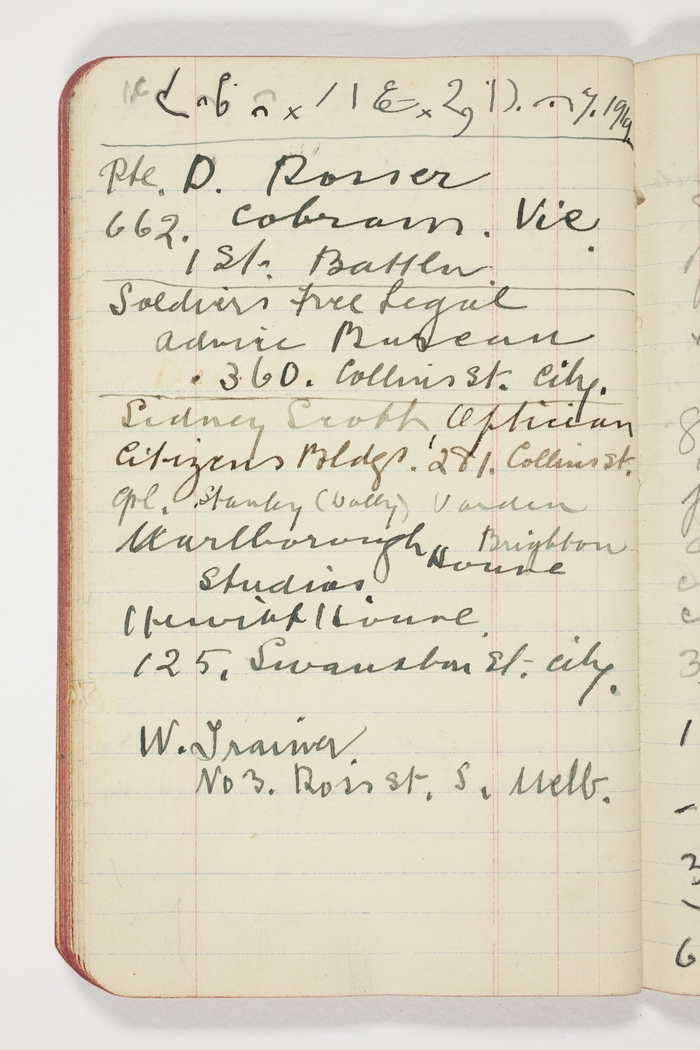 1919.
Pte. D. Rosser
662. Cobram. Vic.
1 St. Battln.
Soldiers Free Legal
advice Bureau
. 360. Collins St. City.
Sidney Scott Optician
Citizens Bldgs. 281. Collins St.
Cpl. Stanley (Wally) Varden
Marlborough House Brighton
Studios.
Hewitt House.
125. Swanston St. city.
W. Trainor
No 3. Ross St. S. Melb.